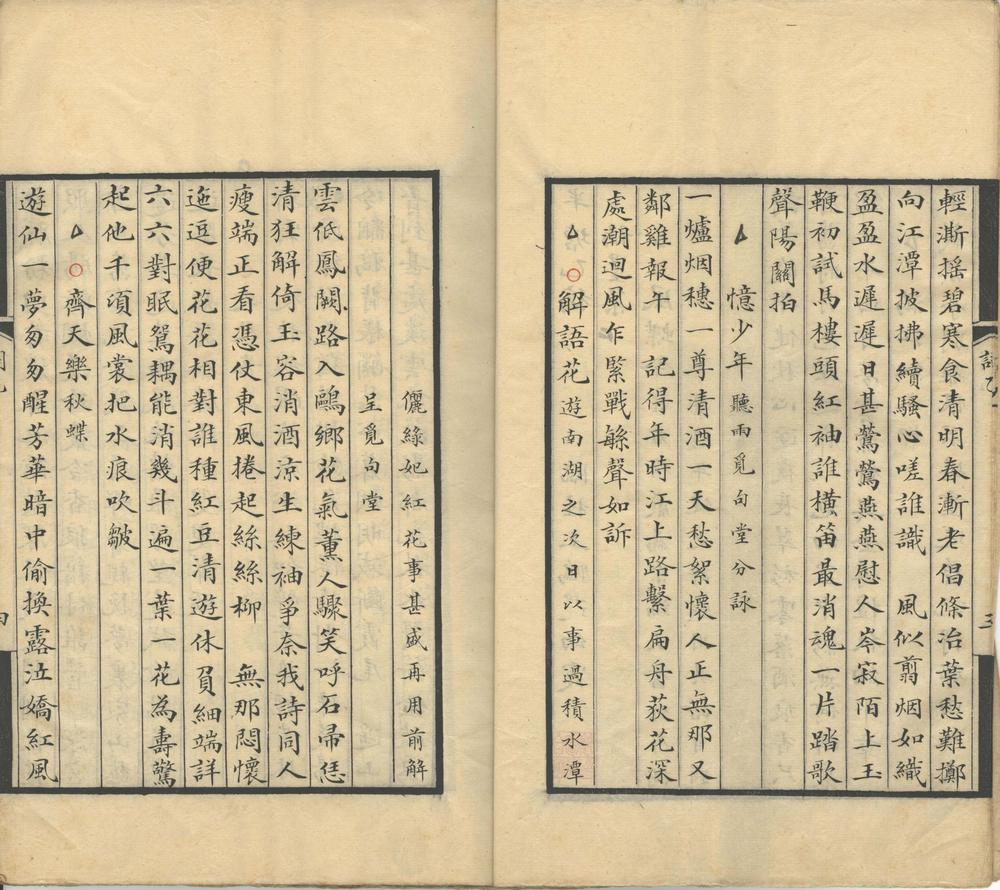 輕澌搖碧寒食清明春漸老倡條冶葉愁難擲
向江潭披拂續騷心嗟誰識　風似翦烟如織
盈盈水遲遲日甚鶯鶯燕燕慰人岑寂陌上玉
鞭初試馬樓頭紅袖誰橫笛最消魂一片踏歌
聲陽關拍
憶少年聽雨覓句堂分詠
一爐烟穗一尊清酒一天愁絮懷人正無那又
鄰雞報午　記得年時江上路繫扁舟荻花深
處潮迴風乍緊戰緜聲如訴
解語花遊南湖之次日以事過積水潭
儷綠妃紅花事甚盛再用前解
呈覓句堂
雲低鳳闕路入鷗鄉花氣薰人驟笑呼石帚恁
清狂解倚玉容消酒涼生練袖爭奈我詩同人
瘦端正看憑仗東風捲起絲絲柳　無那悶懷
迤逗便花花相對誰種紅豆清遊休負細端詳
六六對眠鴛耦能消幾斗遍一葉一花為壽驚
起他千頃風裳把水痕吹皺
齊天樂秋蝶
遊仙一夢匆匆醒芳華暗中偷換露泣嬌紅風
三